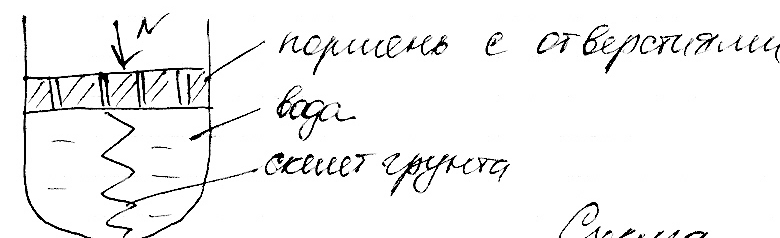 N
поршень с отверстиями
вода
скелет грунта